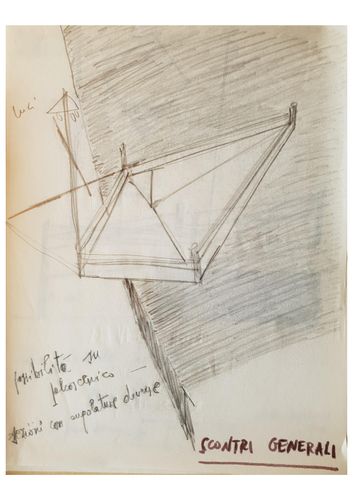 Luci
possibilità su
palcoscenico —
azioni con angolature diverse
SCONTRI GENERALI